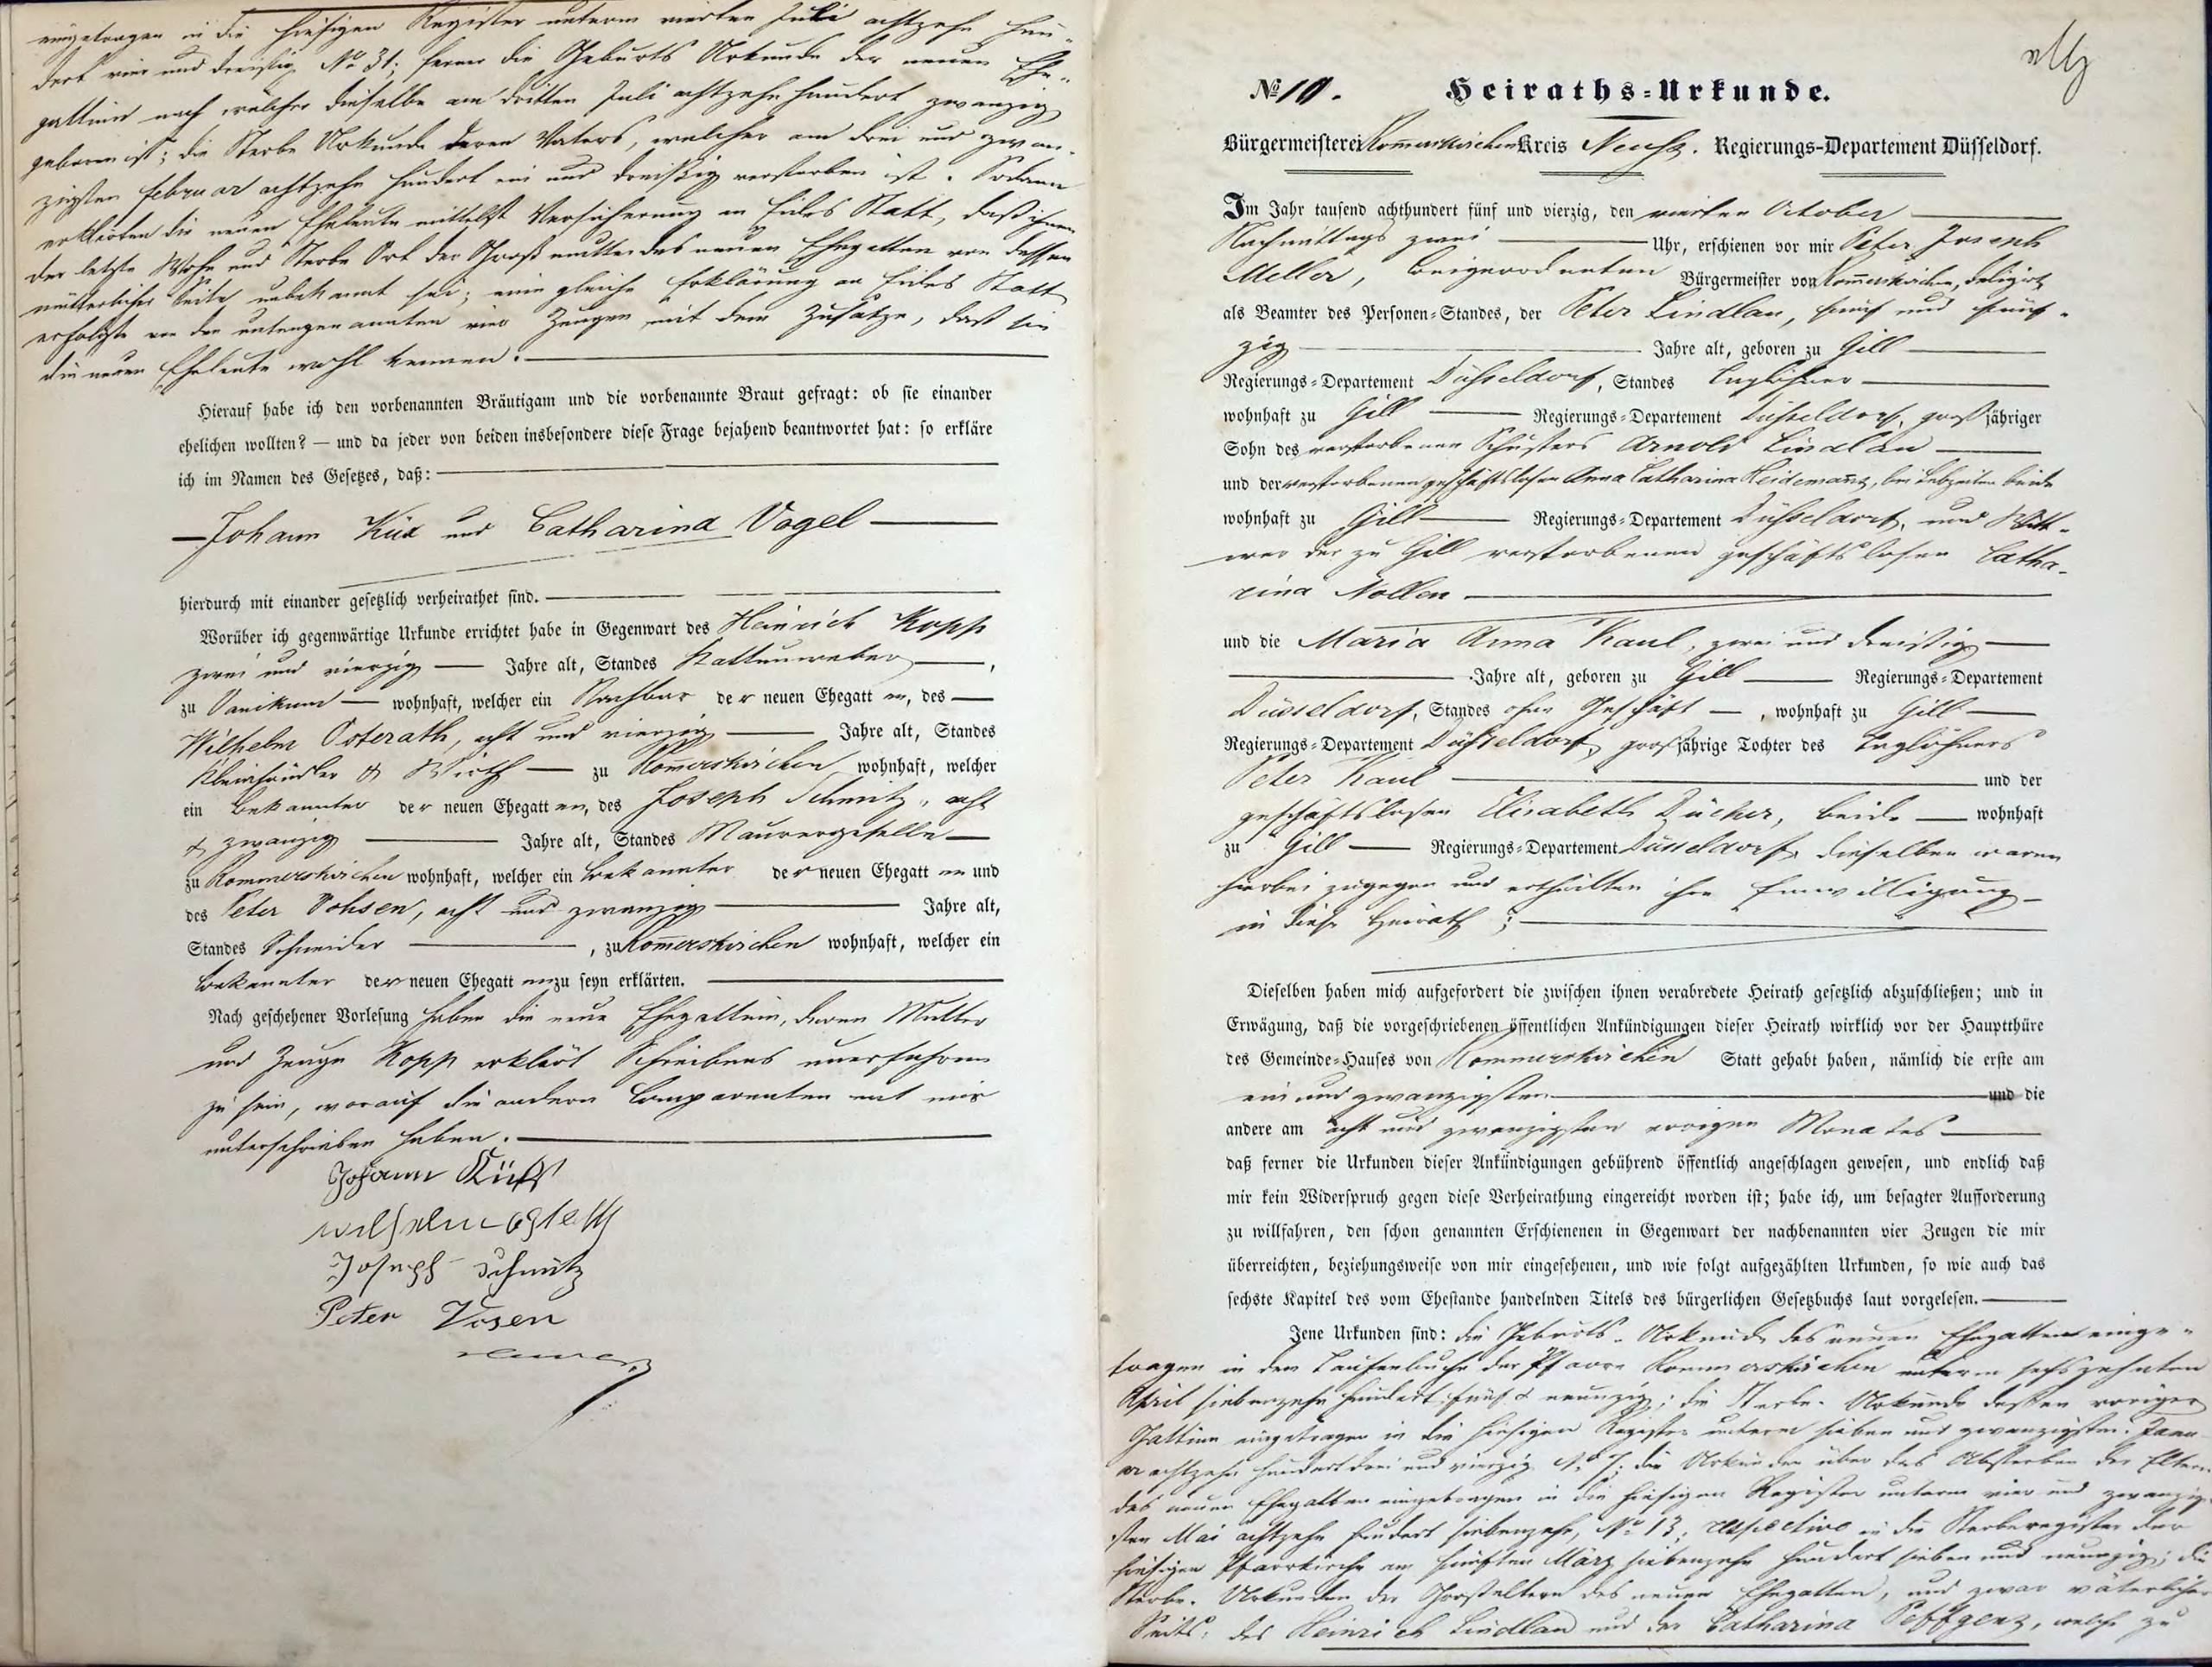 eingetragen in die hiesigen Register unterm vierten Juli achtzehn hun-
dert vier und dreißig No 31; ferner die Geburts Urkunde der neuen Ehe-
gattinn nach welcher dieselbe am dritten Juli achtzehn hundert zwanzig
geboren ist; die Sterbe Urkunde deren Vaters, welcher am drei und zwan-
zigsten februar achtzehn hundert ein und dreißig verstorben ist. Sodann
erklärten die neuen Eheleute mittelst Versicherung an Eides Statt, daß ihnen
der letzte Wohn und Sterbe Ort der Großmutter des neuen Ehegatten von dessen
mütterlicher Seite unbekannt sei; eine gleiche Erklärung an Eides Statt
erfolgte von den untengenannten vier Zeugen mit dem Zusatze, daß sie
die neuen Eheleute wohl kennen.
Hierauf habe ich den vorbenannten Bräutigam und die vorbenannte Braut gefragt: ob sie einander
ehelichen wollten? — und da jeder von beiden insbesondere diese Frage bejahend beantwortet hat: so erkläre
ich im Namen des Gesetzes, daß:
Johann Küx und Catharina Vogel
hierdurch mit einander gesetzlich verheirathet sind.
Worüber ich gegenwärtige Urkunde errichtet habe in Gegenwart des Heinrich Kopp
zwei und vierzig Jahre alt, Standes Kattunweber,
zu Vanikum wohnhaft, welcher ein Nachbar der neuen Ehegatten, des
Wilhelm Osterath, acht und vierzig Jahre alt, Standes
Kleinhändler & Wirth zu Rom̅erskirchen wohnhaft, welcher
ein Bekannter der neuen Ehegatten, des Joseph Schmitz, acht
& zwanzig Jahre alt, Standes Maurergeselle
zu Rommerskirchen wohnhaft, welcher ein Bekannter der neuen Ehegatten und
des Peter Vohsen, acht und zwanzig Jahre alt,
Standes Schneider, zu Rom̅erskirchen wohnhaft, welcher ein
Bekannter der neuen Ehegatten zu seyn erklärten.
Nach geschehener Vorlesung haben die neue Ehegattinn, deren Mutter
und Zeuge Kopp erklärt Schreibens unerfahren
zu sein, worauf die andern Comparenten mit mir
unterschrieben haben.
Johann Küx
Wilhelm Osterath
Joseph Schmitz
Peter Vosen
No 10. Heiraths-Urkunde.
Bürgermeisterei Rom̅erskirchen Kreis Neuss. Regierungs-Departement Düsseldorf.
Im Jahr tausend achthundert fünf und vierzig, den vierten October
Nachmittags zwei Uhr, erschienen vor mir Peter Joseph
Meller, Beigeordneten Bürgermeister von Rom̅erskirchen, deligirt
als Beamter des Personen-Standes, der Peter Lindlau, fünf und fünf-
zig Jahre alt, geboren zu Gill
Regierungs-Departement Düsseldorf, Standes Taglöhner
wohnhaft zu Gill Regierungs-Departement Düsseldorf, großjähriger
Sohn des verstorbenen Schusters Arnold Lindlau
und der verstorbenen geschäftslosen Anna Catharina Heideman̅s, bei Lebzeiten beide
wohnhaft zu Gill Regierungs-Departement Düsseldorf, und Witt-
wer der zu Gill verstorbenen geschäftslosen Catha-
rina Nollen
und die Maria Anna Kaul, zwei und dreißig
Jahre alt, geboren zu Gill Regierungs-Departement
Düsseldorf, Standes ohne Geschäft, wohnhaft zu Gill
Regierungs-Departement Düsseldorf, großjährige Tochter des Taglöhners
Peter Kaul und der
geschäftslosen Elisabeth Dücher, beide wohnhaft
zu Gill Regierungs-Departement Düsseldorf, dieselben waren
hierbei zugegen und ertheilten ihre Einwilligung
in diese Heirath;
Dieselben haben mich aufgefordert die zwischen ihnen verabredete Heirath gesetzlich abzuschließen; und in
Erwägung, daß die vorgeschriebenen öffentlichen Ankündigungen dieser Heirath wirklich vor der Hauptthüre
des Gemeinde-Hauses von Rommerskirchen Statt gehabt haben, nämlich die erste am
ein und zwanzigsten und die
andere am acht und zwanzigsten vorigen Monates
daß ferner die Urkunden dieser Ankündigungen gebührend öffentlich angeschlagen gewesen, und endlich daß
mir kein Widerspruch gegen diese Verheirathung eingereicht worden ist; habe ich, um besagter Aufforderung
zu willfahren, den schon genannten Erschienenen in Gegenwart der nachbenannten vier Zeugen die mir
überreichten, beziehungsweise von mir eingesehenen, und wie folgt aufgezählten Urkunden, so wie auch das
sechste Kapitel des vom Ehestande handelnden Titels des bürgerlichen Gesetzbuchs laut vorgelesen.
Jene Urkunden sind: die Geburts-Urkunde des neuen Ehegatten einge-
tragen in dem Taufenbuche der Pfarre Rommerskirchen unterm sechszehnten
April siebenzehn hundert fünf & neunzig; die Sterbe-Urkunde dessen voriger
Gattinn eingetragen in die hiesigen Register unterm sieben und zwanzigsten Janu-
ar achtzehn hundert drei und vierzig No 7; die Urkunden über das Absterben der Eltern
des neuen Ehegatten eingetragen in die hiesigen Register unterm vier und zwanzig-
sten Mai achtzehn hundert siebenzehn, No 13, respective in die Sterberegister der
hiesigen Pfarrkirche am fünften März siebenzehn hundert sieben und neunzig; die
Sterbe-Urkunden der Großeltern des neuen Ehegatten, und zwar väterlicher
Seits: des Heinrich Lindlau und der Catharina Peffgens, welche zu